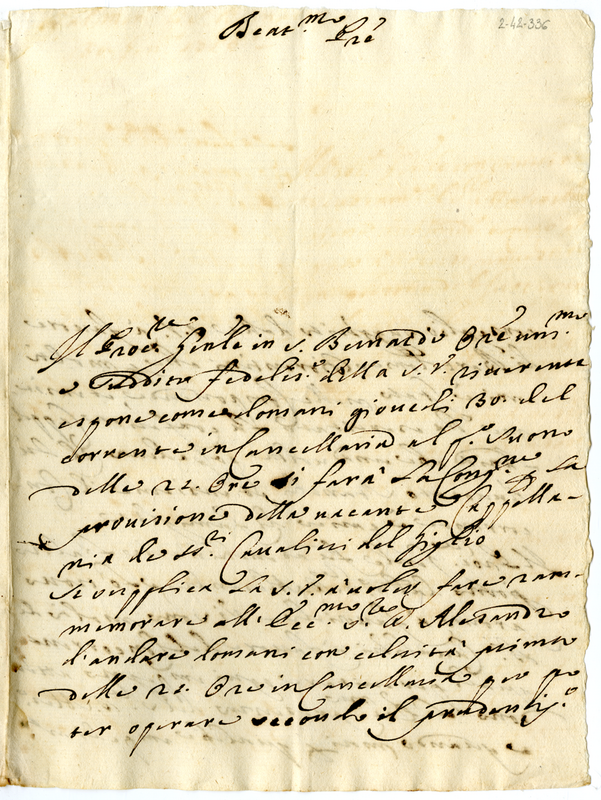 Beat.mo Pre
2-42-336
Il Proc.re Gen.le in S. Bernardo Ore umi.mo
e suddito fedelis.o della S. V. riverente
espone come domani giovedi 30. del
Corrente in Cancellaria al p.o suono
delle 22. Ore si farà La Cong.ne p. La
provisione della vacante Cappella-
nia de SS.ri Cavalieri del Giglio
Si supplica La S. V. à voler fare ram-
memorare all' Ecc.mo S. D. Alesandro
d'andare domani con celerità prima
delle 22. Ore in Cancellaria per po
ter operare secondo il prudentis.o